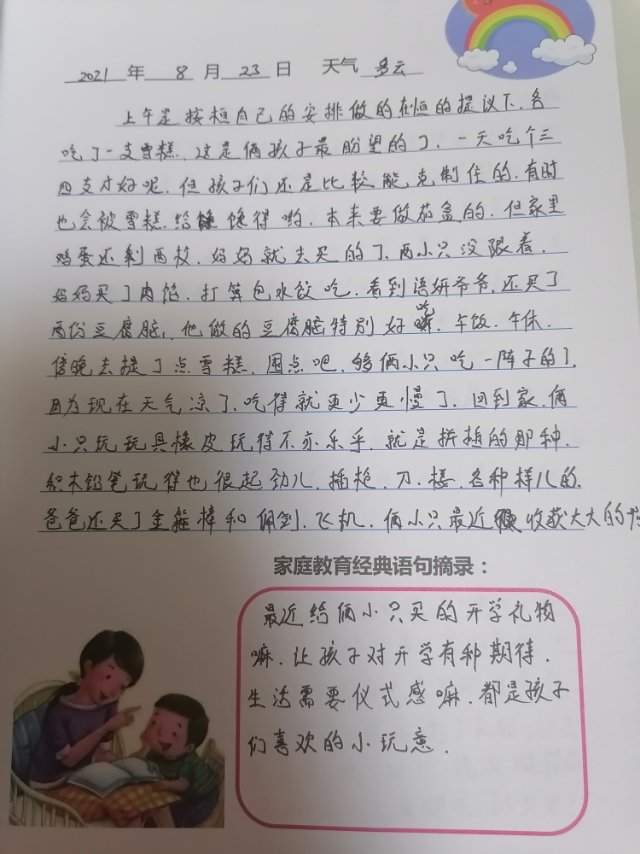 2021 年 8 月 23 日 天气 多云
上午是按桓自己的安排做的在恒的提议下,各
吃了一支雪糕,这是俩孩子最盼望的了,一天吃个三
四支才好呢,但孩子们还是比较能克制住的,有时
也会被雪糕给馋得哟,本来要做茄盒的,但家里
鸡蛋还剩两枚,妈妈就去买的了,两小只没跟着,
妈妈买了肉馅,打算包水饺吃,看到语妍爷爷,还买了
两份豆腐脑,他做的豆腐脑特别好吃,午饭,午休,
傍晚去提了点雪糕,囤点吧,够俩小只吃一阵子的了
因为现在天气凉了,吃得就更少更慢了,回到家,俩
小只玩玩具橡皮玩得不亦乐乎,就是拼插的那种,
积木铅笔玩得也很起劲儿,插枪,刀,楼,各种样儿的
爸爸还买了金箍棒和佩剑,飞机,俩小只最近收获大大的
家庭教育经典语句摘录:
最近给俩小只买的开学礼物
嘛,让孩子对开学有种期待,
生活需要仪式感嘛,都是孩子
们喜欢的小玩意.